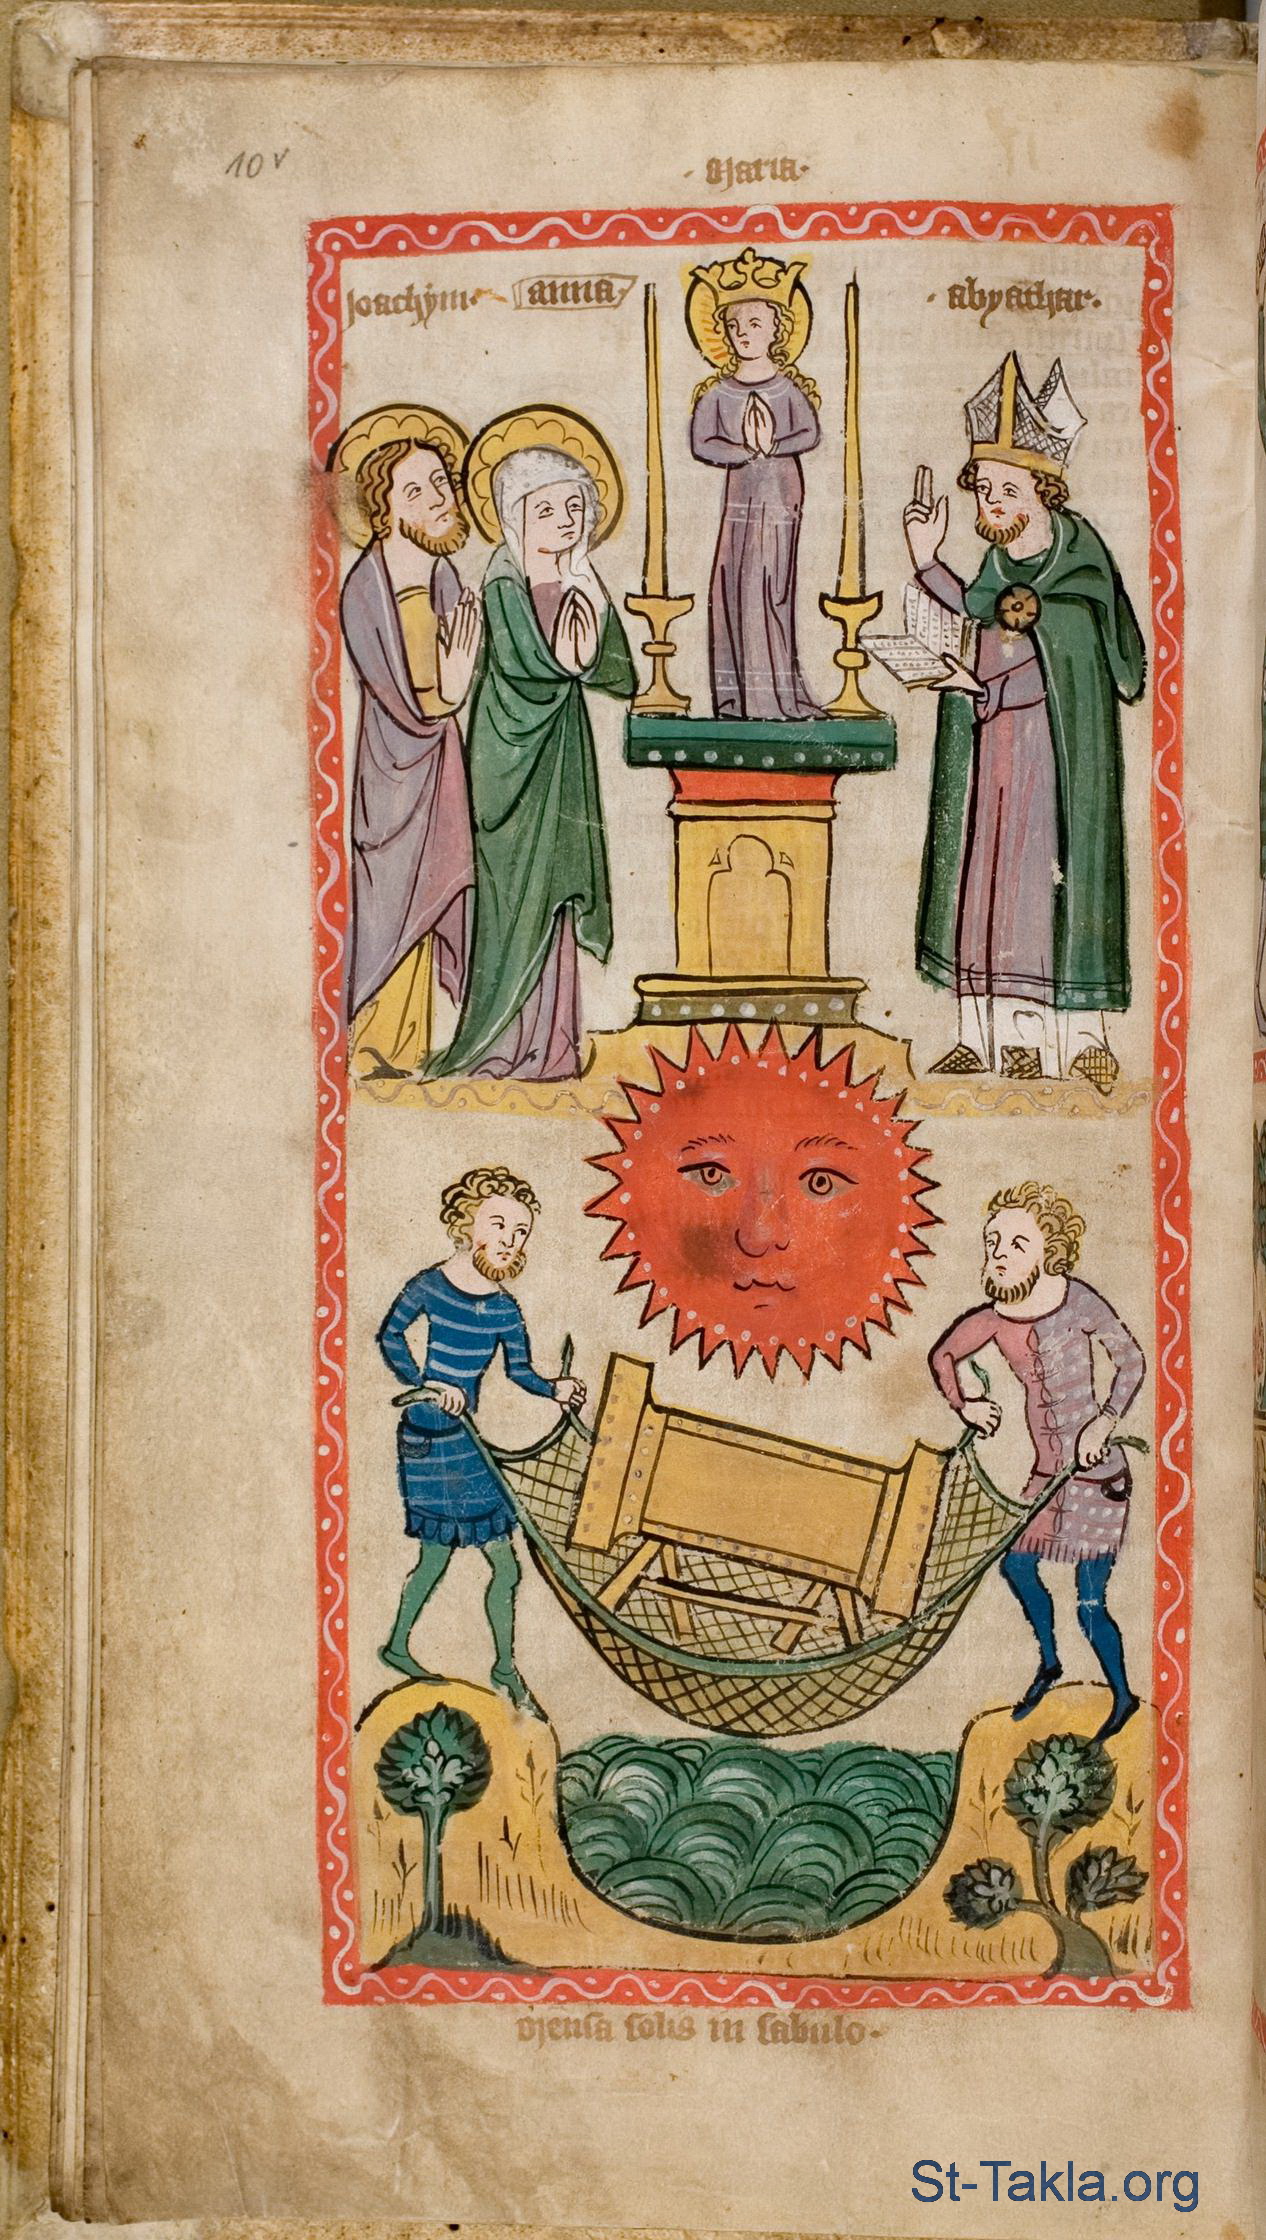 10v
· Maria·
Joachym· anna·
· abyathar·
Mensa solis in sabulo·
St-Takla.org